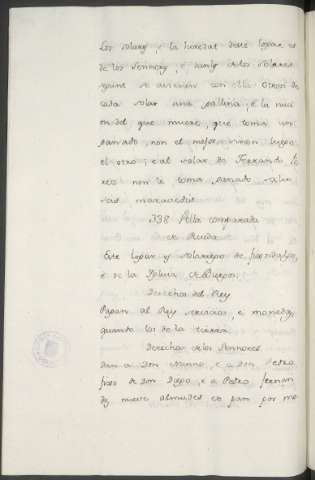 Los solares, e la heredat deste logar es
de los Sennores, e danle de los solares
quine se avienen con ella Otrosi de
cada solar una gallina; e la nuci
on del que muere, que toma un
ganado non el mejor, mas luego
el otro; e al solar de Ferrando
non le toma ganado salvo
maravedis.
338 Villa comparada
de Rueda
Este logar es solariego de fijosdalgo,
e de la Iglesia de Burgos.
Derechos del Rey
Pagan al Rey servicios, e monedas,
quando los de la tierra.
Derechos de los Sennores
Dan a Don Nunno, e a Don Pedro,
fijos de Don Diego, e a Pedro Fernan
dez nueve almudes de pan por me